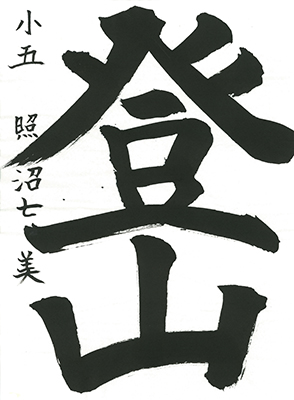 登山
小五 照沼七美